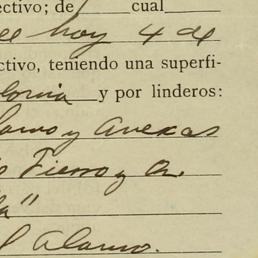 ectivo; de cual
hoy 4 de
ctivo, teniendo una superfi-
y por linderos:
y anexas
Fierro y A.
l Alamo.